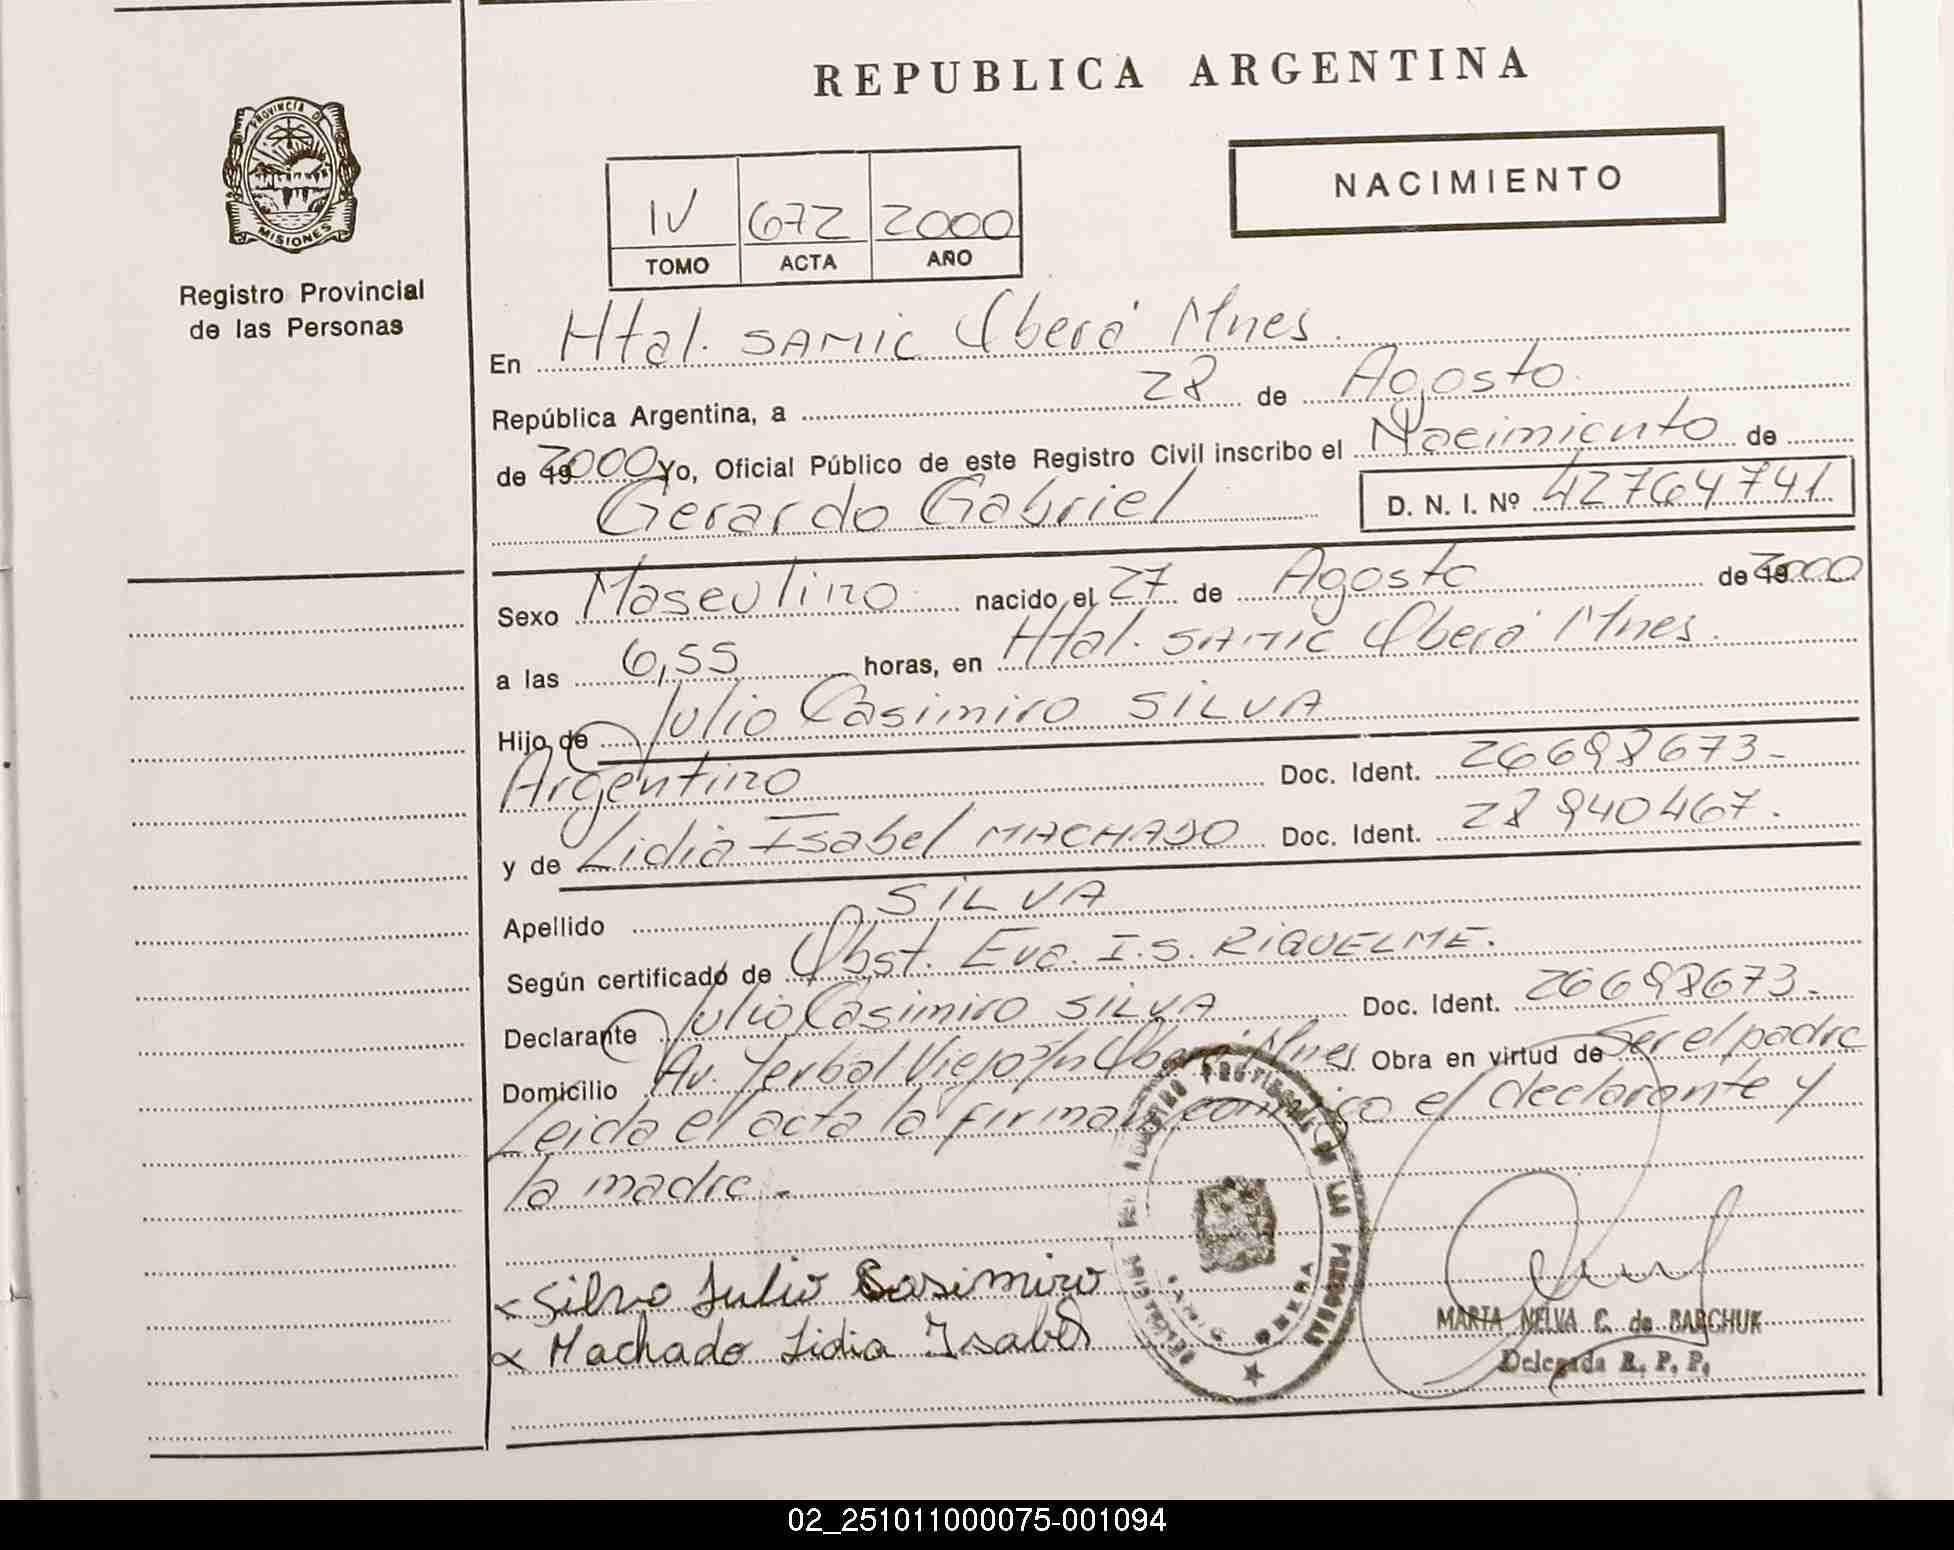 REPUBLICA ARGENTINA
PROVINCIA DE
MISIONES
Registro Provincial
de las Personas
NACIMIENTO
IV 672 2000
TOMO ACTA AÑO
En Htal. SAMIC Oberá Mnes.
República Argentina, a 28 de Agosto
de 2000 Yo, Oficial Público de este Registro Civil inscribo el Nacimiento de
Gerardo Gabriel D. N. I. Nº 42764741
Sexo Masculino nacido el 27 de Agosto de 2000
a las 6,55 horas, en Htal. SAMIC Oberá Mnes.
Hijo de Julio Casimiro SILVA
Argentino Doc. Ident. 26698673-
y de Lidia Isabel MACHADO Doc. Ident. 28940467.
Apellido SILVA
Según certificado de Obst. Eva. I.S. RIQUELME.
Declarante Julio Casimiro SILVA Doc. Ident. 26698673-
Domicilio Av. Yerbal Viejo s/n Oberá Mnes Obra en virtud de Ser el padre
Leida el acta la firman conmigo el declarante y
la madre.-
Silva Julio Casimiro
Machado Lidia Isabel
REGISTRO PROVINCIAL DE LAS PERSONAS
OBERA
MARTA NELVA C. de BARCHUK
Delegada R. P. P.
02_251011000075-001094